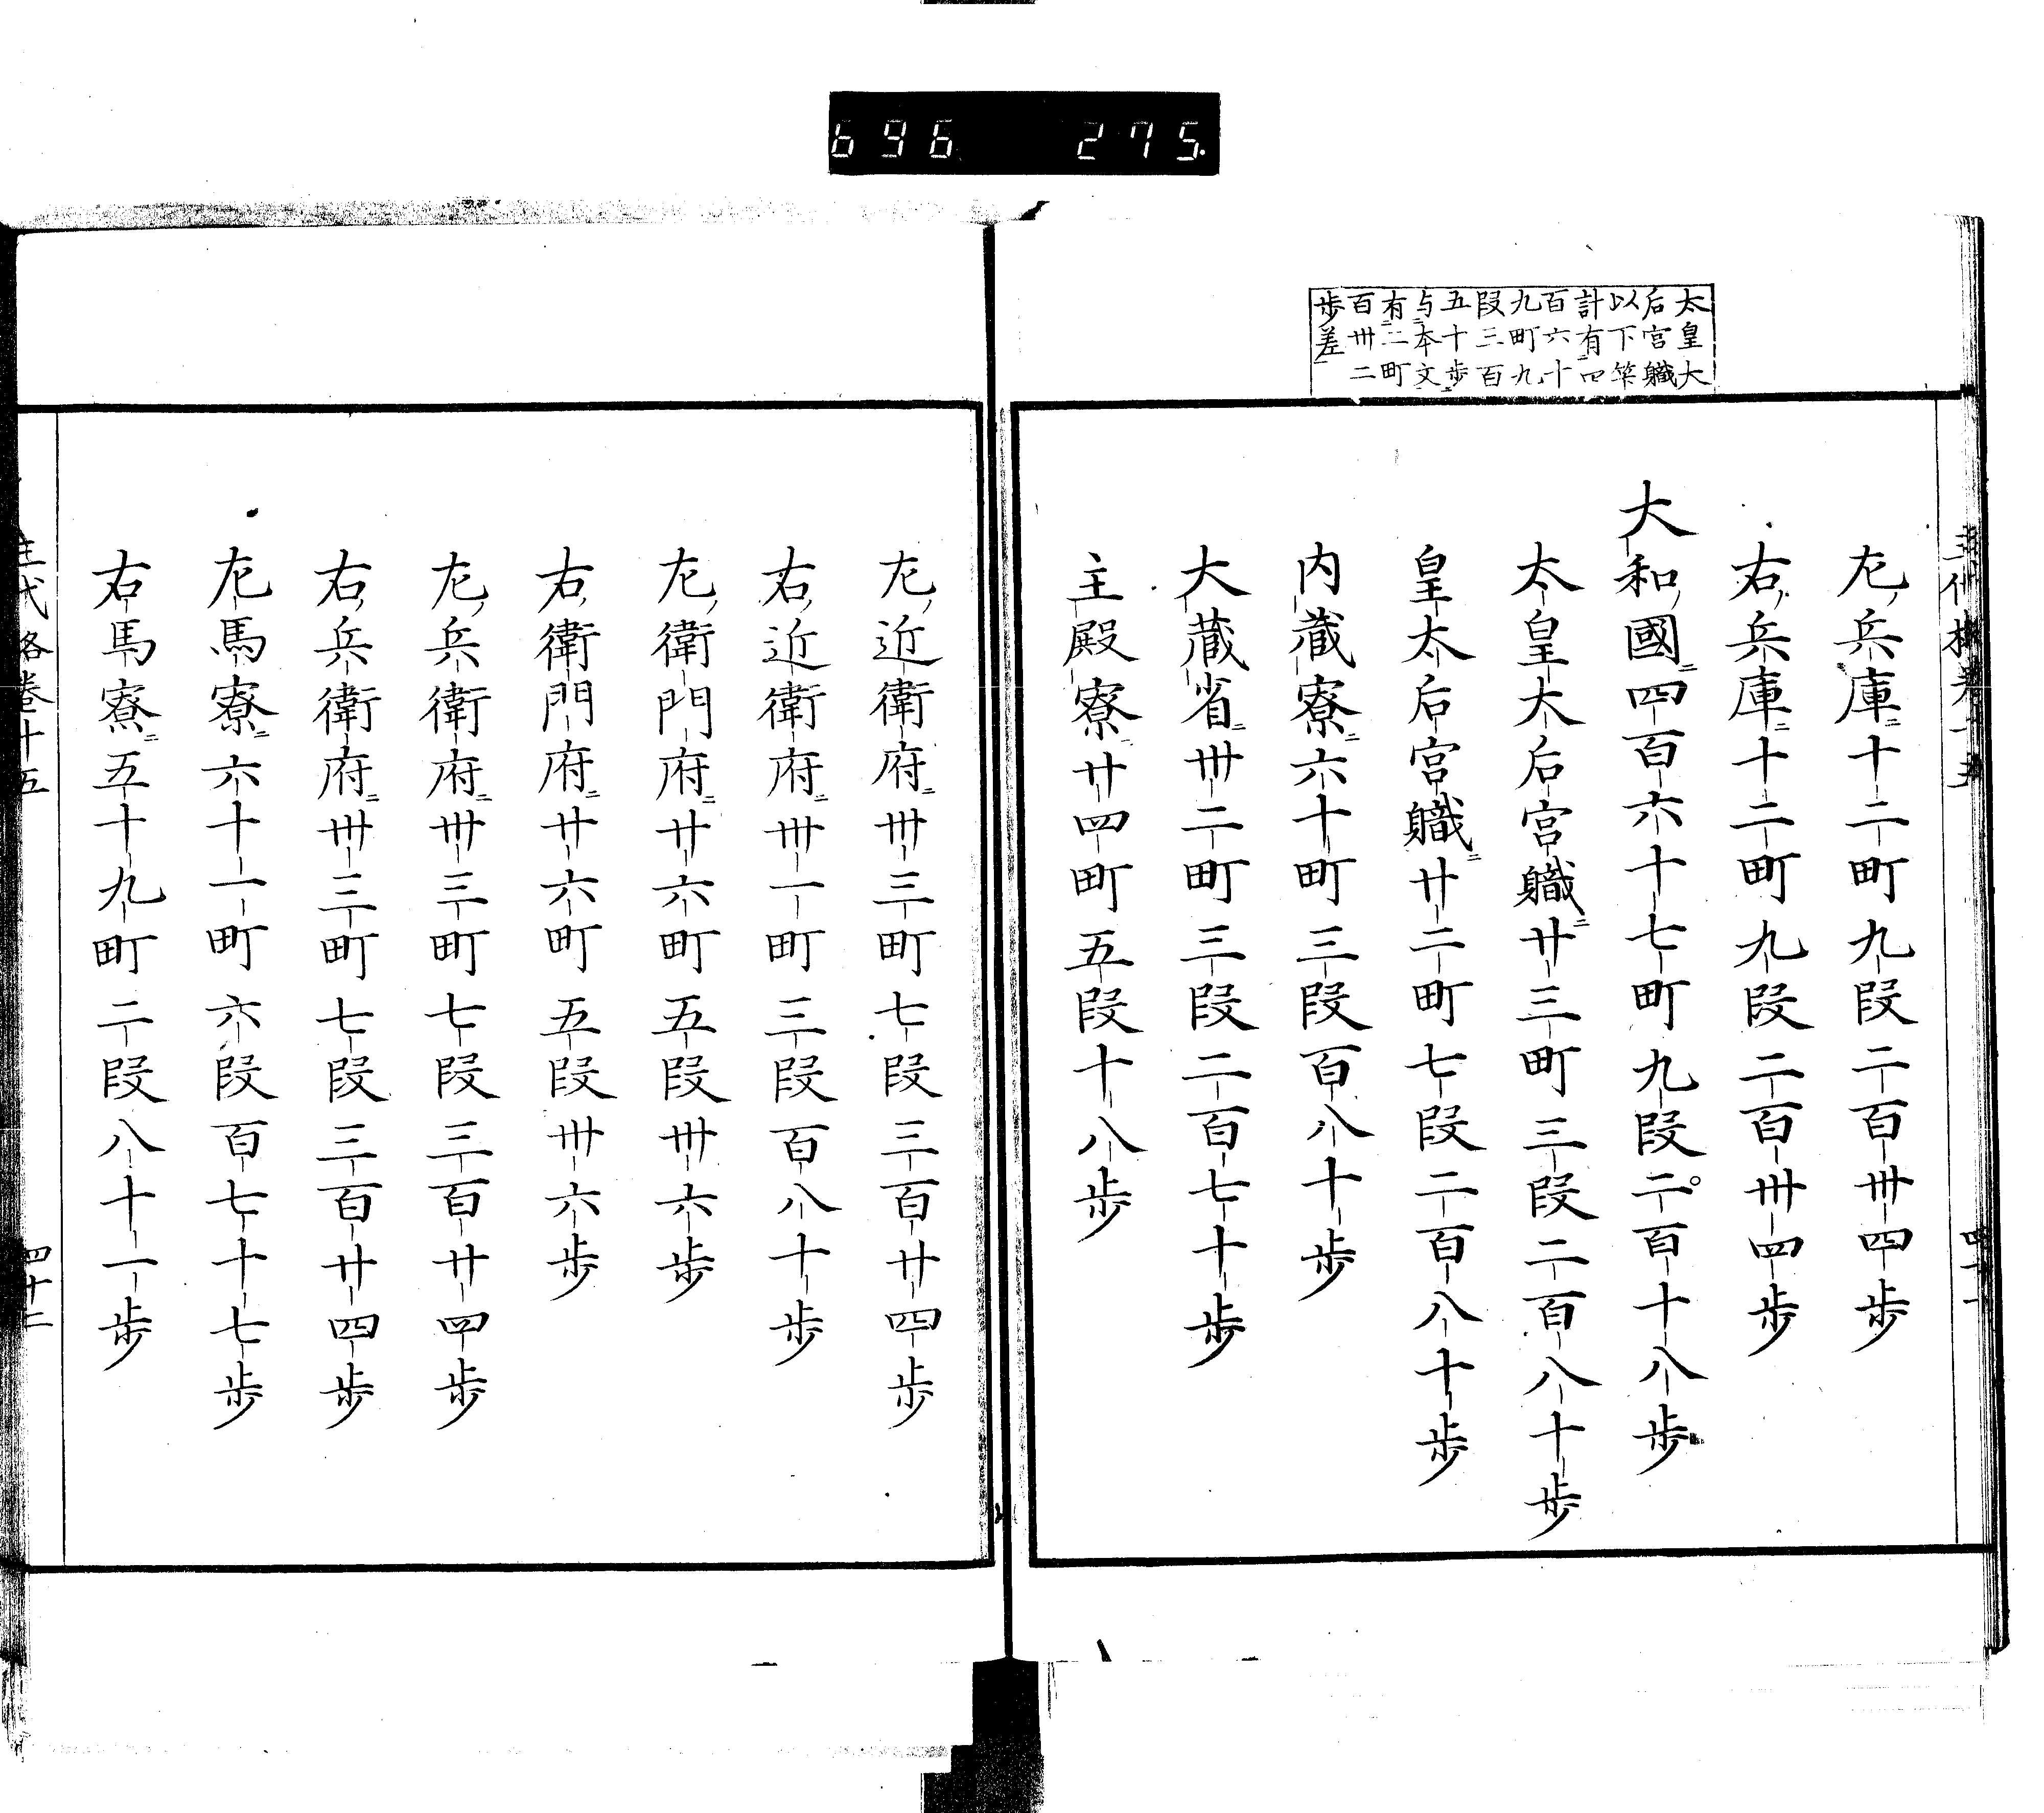 696 275
太皇大
后宮職
以下筭
計有四
百六十
九町九
段三百
五十歩
与本文
有二町
百卅二
歩差
左兵庫十二町九段二百卅四歩
右兵庫十二町九段二百卅四歩
大和國四百六十七町九段二百十八歩
太皇太后宮職廿三町三段二百八十歩
皇太后宮職廿二町七段二百八十歩
内蔵寮六十町三段百八十歩
大蔵省卅二町三段二百七十歩
主殿寮廿四町五段十八歩
左近衛府卅三町七段三百廿四歩
右近衛府卅一町三段百八十歩
左衛門府廿六町五段卅六歩
右衛門府廿六町五段卅六歩
左兵衛府卅三町七段三百廿四歩
右兵衛府卅三町七段三百廿四歩
左馬寮六十一町六段百七十七歩
右馬寮五十九町二段八十一歩
三代格卷十五
四十二